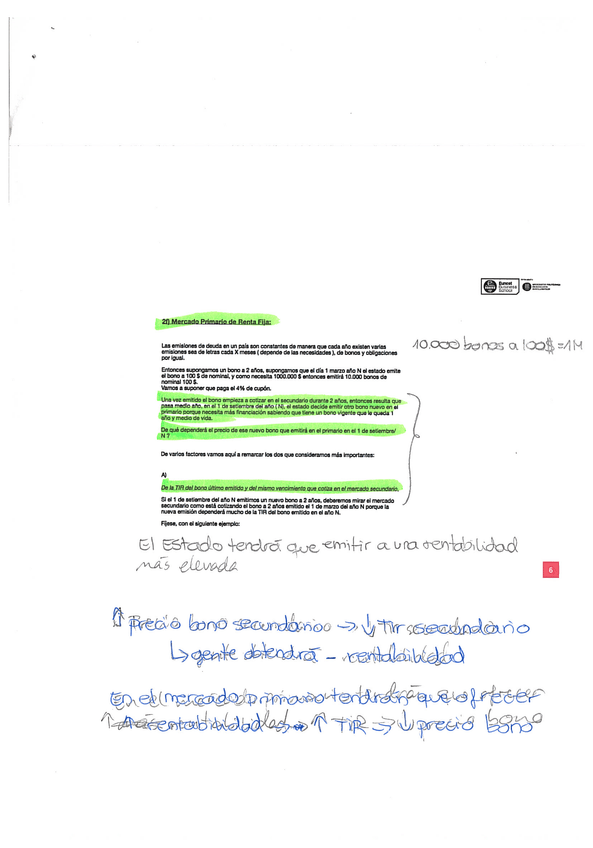 Euncet
Business
School
2f) Mercado Primario de Renta Fija:
10.000 bonos a 100$ = 1M
Las emisiones de deuda en un país son constantes de manera que cada año existen varias
emisiones sea de letras cada X meses ( depende de las necesidades ), de bonos y obligaciones
por igual.
Entonces supongamos un bono a 2 años, supongamos que el día 1 marzo año N el estado emite
el bono a 100 $ de nominal, y como necesita 1000000 $ entonces emitirá 10.000 bonos de
nominal 100 $.
Vamos a suponer que paga el 4% de cupón.
Una vez emitido el bono empieza a cotizar en el secundario durante 2 años, entonces resulta que
pasa medio año, en el 1 de setiembre del año ( N ), el estado decide emitir otro bono nuevo en el
primario porque necesita más financiación sabiendo que tiene un bono vigente que le queda 1
año y medio de vida.
De qué dependerá el precio de ese nuevo bono que emitirá en el primario en el 1 de setiembre/
N ?
De varios factores vamos aquí a remarcar los dos que consideramos más importantes:
A)
De la TIR del bono último emitido y del mismo vencimiento que cotiza en el mercado secundario.
Si el 1 de setiembre del año N emitimos un nuevo bono a 2 años, deberemos mirar el mercado
secundario como está cotizando el bono a 2 años emitido el 1 de marzo del año N porque la
nueva emisión dependerá mucho de la TIR del bono emitido en el año N.
Fíjese, con el siguiente ejemplo:
El Estado tendrá que emitir a una rentabilidad
más elevada
6
↑ Precio bono secundario → ↓ TIR secundario
↳ gente obtendrá - rentabilidad
En el mercado primario tendrán que ofrecer
↑ rentabilidad → ↑ TIR → ↓ precio bono